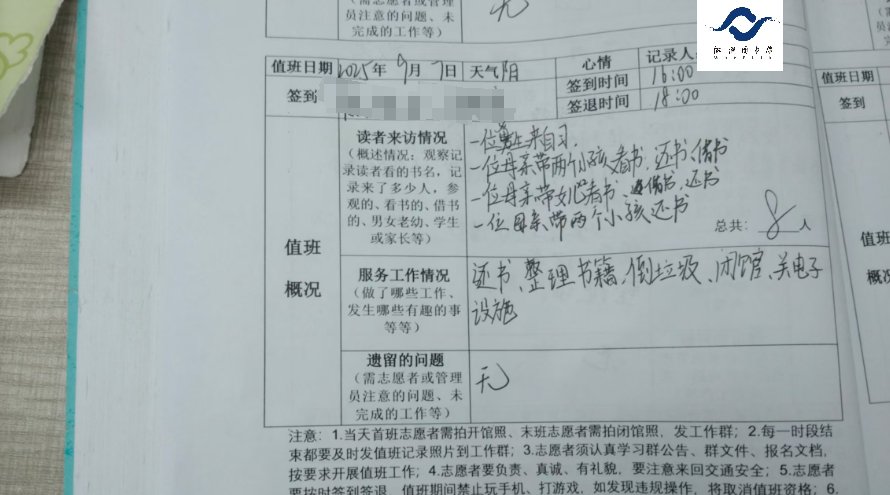 （需志愿者或管理
员注意的问题、未
完成的工作等）
无
值班日期 2025年 9月 7日 天气 阴 心情 记录人
签到 签到时间 16:00
签退时间 18:00
值班日期
签到
值班
概况
读者来访情况
（概述情况：观察记
录读者看的书名，记
录来了多少人，参
观的、看书的、借书
的、男女老幼、学生
或家长等）
一位男生来自习、
一位母亲带两个小孩看书、还书、借书
一位母亲带女儿看书、借书、还书
一位母亲带两个小孩还书
总共：8人
服务工作情况
（做了哪些工作、
发生哪些有趣的事
等等）
还书、整理书籍、倒垃圾、闭馆、关电子
设施
遗留的问题
（需志愿者或管理
员注意的问题、未
完成的工作等）
无
注意：1.当天首班志愿者需拍开馆照、末班志愿者需拍闭馆照，发工作群；2.每一时段结
束都要及时发值班记录照片到工作群；3.志愿者须认真学习群公告、群文件、报名文档，
按要求开展值班工作；4.志愿者要负责、真诚、有礼貌，要注意来回交通安全；5.志愿者
要按时签到签退，值班期间禁止玩手机、打游戏，如发现违规操作，将取消值班资格；6.